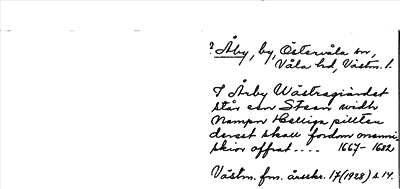 ? Åby, by, Östervåla sn,
Våla hd, Västm. l.
I Årby Wästragiärdet
står een Steen widh
Nampn Helliga pillten
deräst skall fordom menni-
skior offrat .... 1667-1682
Västm. fm. årsskr. 17 (1928) s. 14.